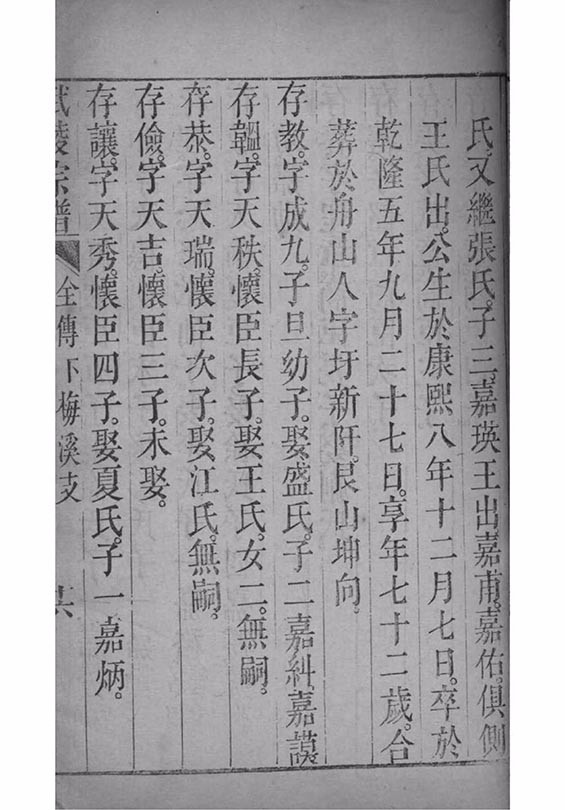 氏又繼張氏子三嘉瑛王出嘉甫嘉佑俱側
王氏出公生於康熙八年十二月七日卒於
乾隆五年九月二十七日享年七十二歲合
葬於舟山人字圩新阡艮山坤向
存教字成九子旦幼子娶盛氏子二嘉糾嘉謨
存韞字天秩懷臣長子娶王氏女二無嗣
存恭字天瑞懷臣次子娶江氏無嗣
存儉字天吉懷臣三子未娶
存讓字天秀懷臣四子娶夏氏子一嘉炳
武陵宗譜 仝傳下梅溪支